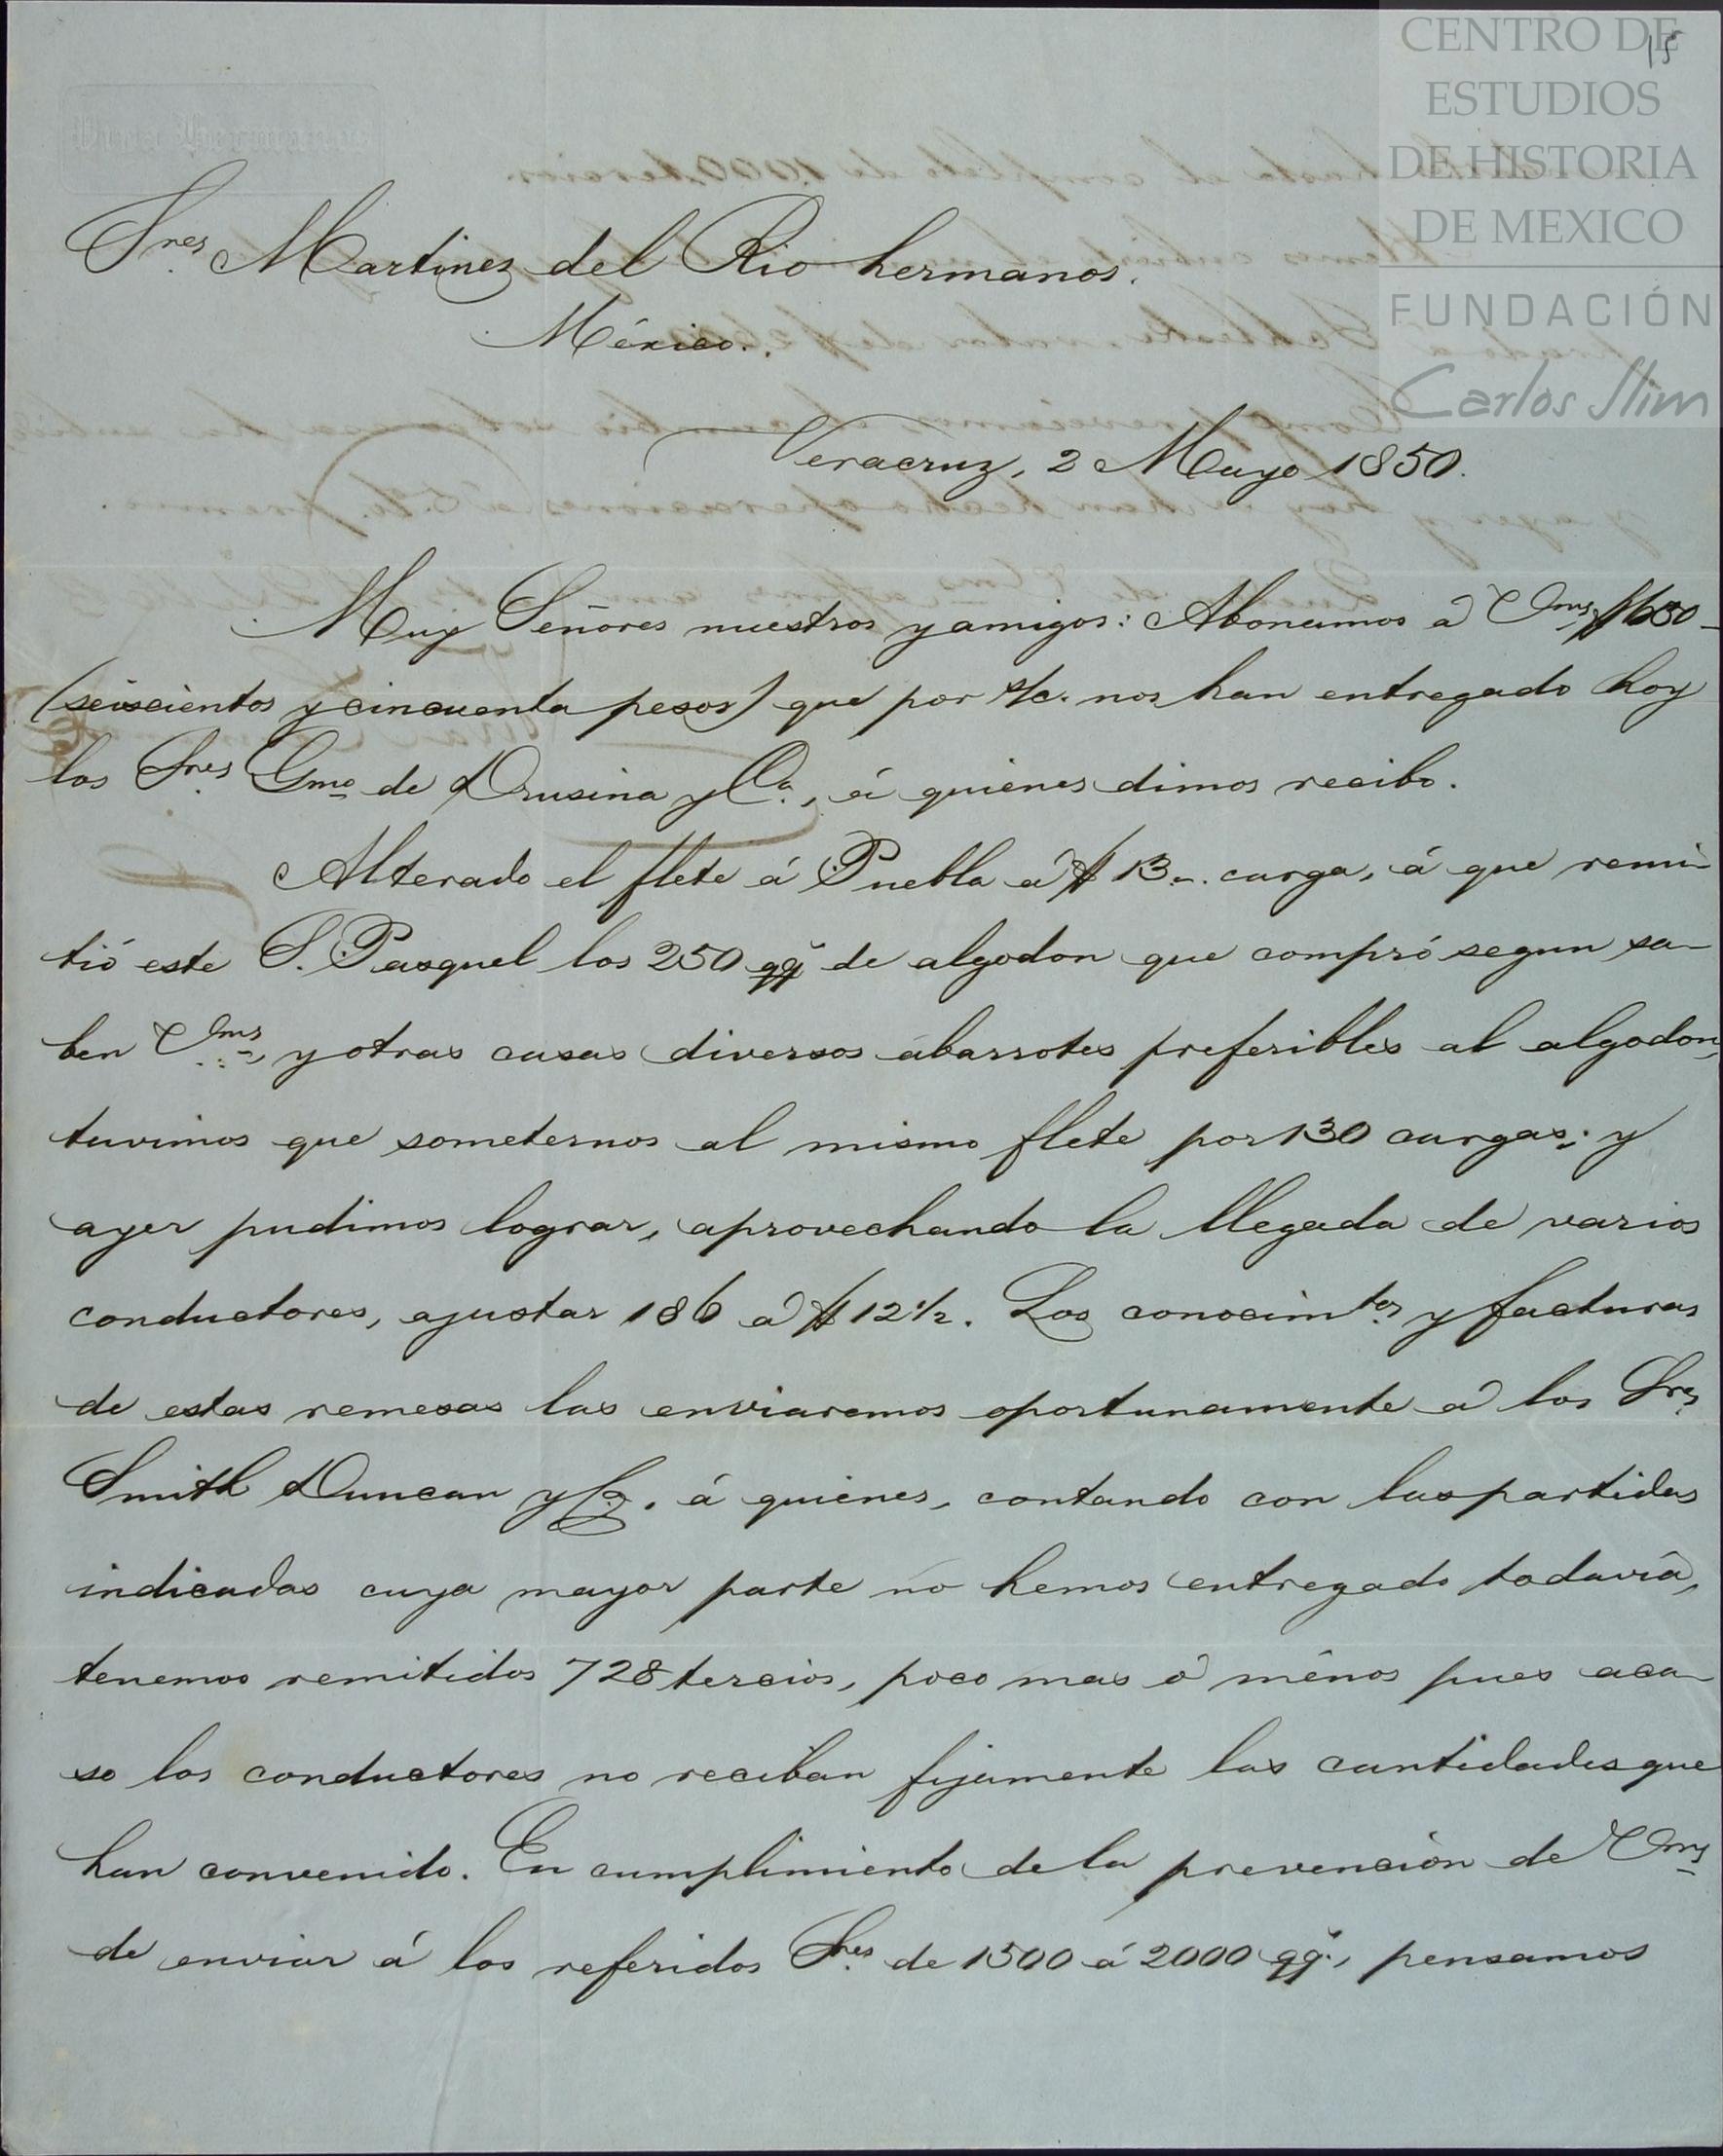 CENTRO DE
ESTUDIOS
DE HISTORIA
DE MEXICO
FUNDACIÓN
Carlos Slim
15
Sres Martinez del Rio hermanos.
México.
Veracruz, 2 Mayo 1850.
Muy Señores nuestros y amigos: Abonamos á Vms $650
(seiscientos y cincuenta pesos) que por s/c. nos han entregado hoy
los Sres Gmo de Drusina y Ca., á quienes dimos recibo.
Alterado el flete á Puebla á $13.. carga, á que remi-
tió este S. Pasquel los 250 qqs de algodon que compró segun sa-
ben Vms, y otras casas diversos abarrotes preferibles al algodon,
tuvimos que someternos al mismo flete por 130 cargas; y
ayer pudimos lograr, aprovechando la llegada de varios
conductores, ajustar 186 á $12 1/2. Los conocimtos y facturas
de estas remesas las enviaremos oportunamente á los Sres
Smith Duncan y Ca. á quienes, contando con las partidas
indicadas cuya mayor parte no hemos entregado todavía,
tenemos remitidos 728 tercios, poco mas ó ménos pues aca-
so los conductores no reciban fijamente las cantidades que
han convenido. En cumplimiento de la prevención de Vms
de enviar á los referidos Sres de 1500 á 2000 qqs., pensamos